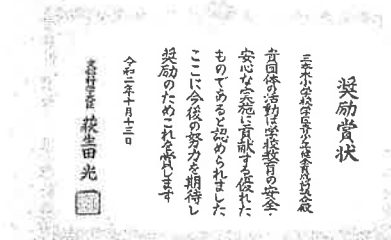 奨励賞状
三本木小学校学区青少年健全育成協議会殿
貴団体の活動は学校教育の安全・
安心な実施に貢献する優れた
ものであると認められました
ここに今後の努力を期待し
奨励のためこれを賞します
令和二年十月十三日
文部科学大臣 萩生田光